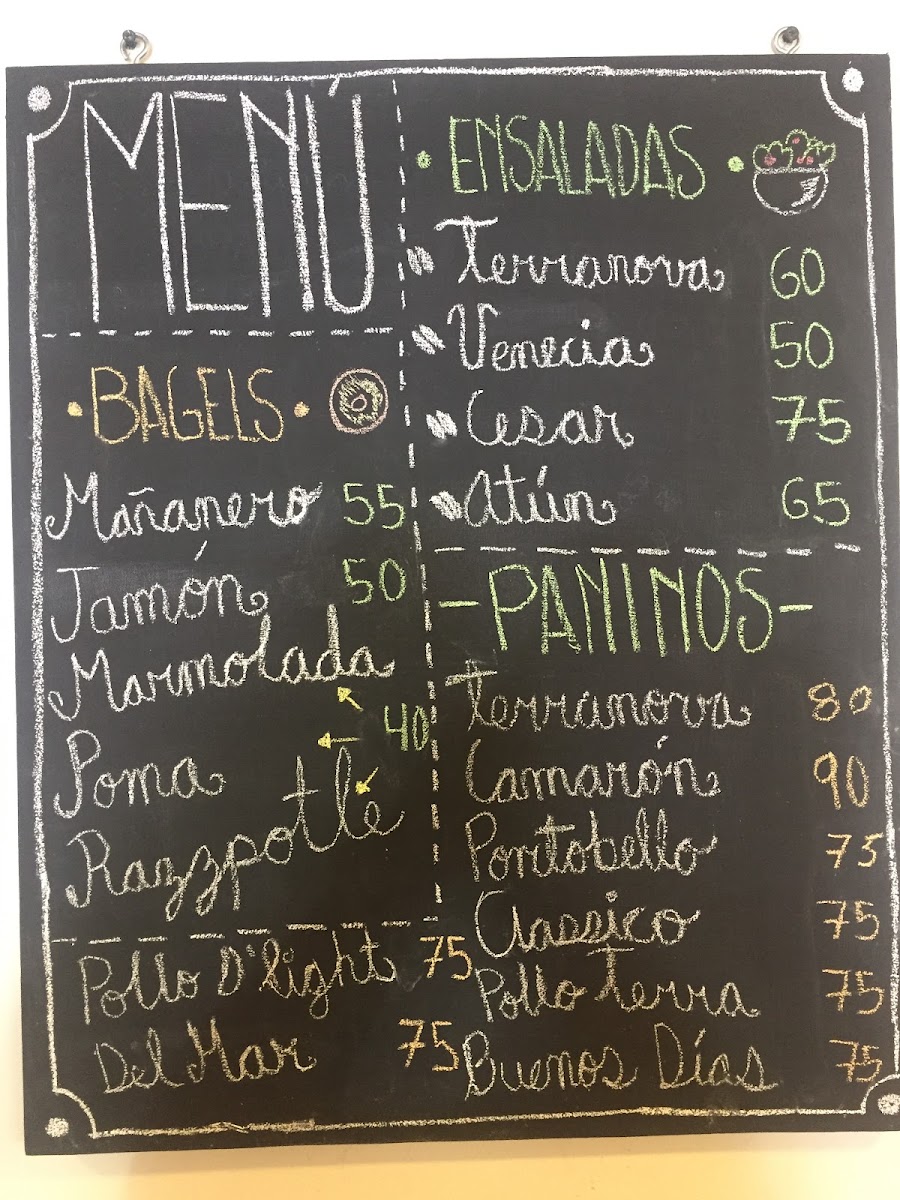 MENÚ
• BAGELS •
Mañanero 55
Jamón 50
Marmolada
40
Poma
Razzpotle
Pollo D'light 75
Del Mar 75
• ENSALADAS •
Terranova 60
Venecia 50
Cesar 75
Atún 65
-PANINOS-
Terranova 80
Camarón 90
Portobello 75
Classico 75
Pollo Terra 75
Buenos Días 75